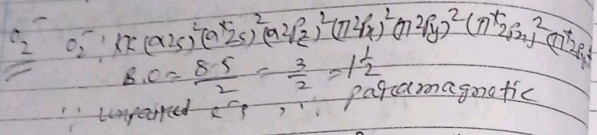 O₂⁻ O₂⁻: KK (σ2s)² (σ*2s)² (σ2Pz)² (π2Px)² (π2Py)² (π*2Px)² (π*2Py)¹
B.O = 8-5/2 = 3/2 = 1 1/2
∴ unpaired e⁻s, ∴ paramagnetic